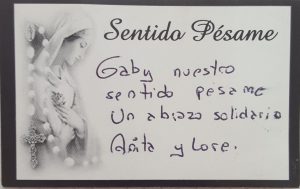 Sentido Pésame
Gaby nuestro
sentido pesame
Un abrazo solidario
Anita y Lore.